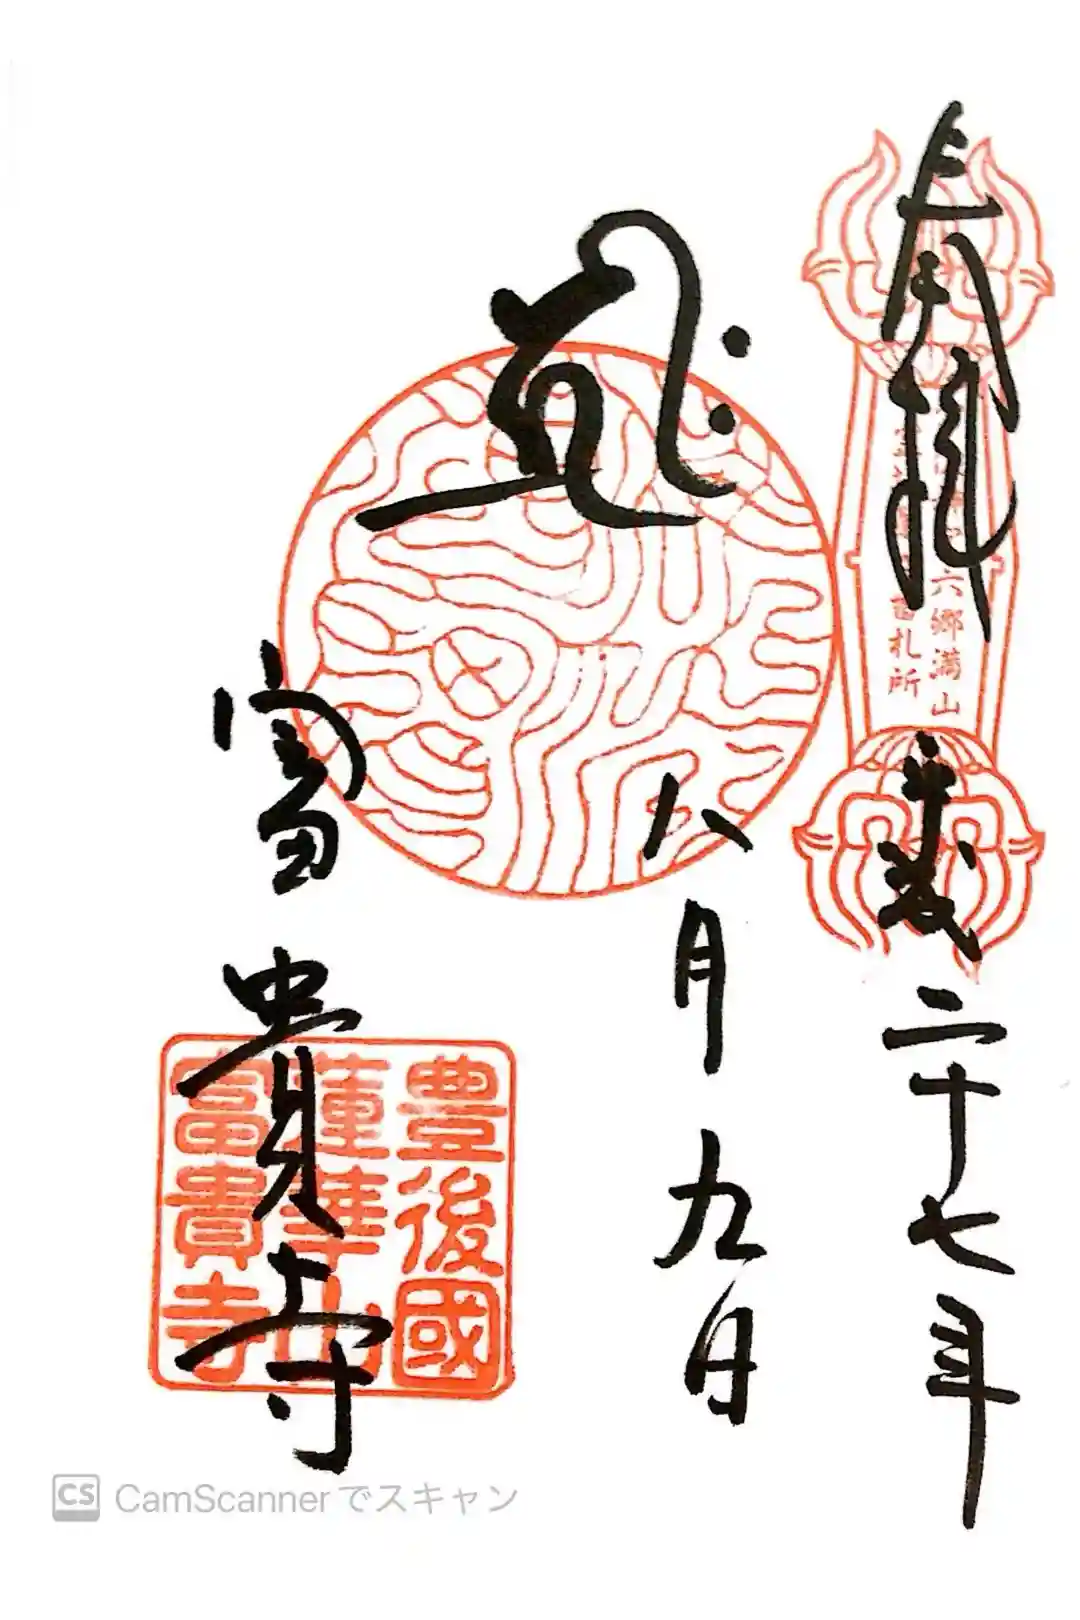 奉拝
平成二十七年
六郷満山
番札所
八月九日
富貴寺
豊後國
蓮華山
富貴寺
CS CamScannerでスキャン